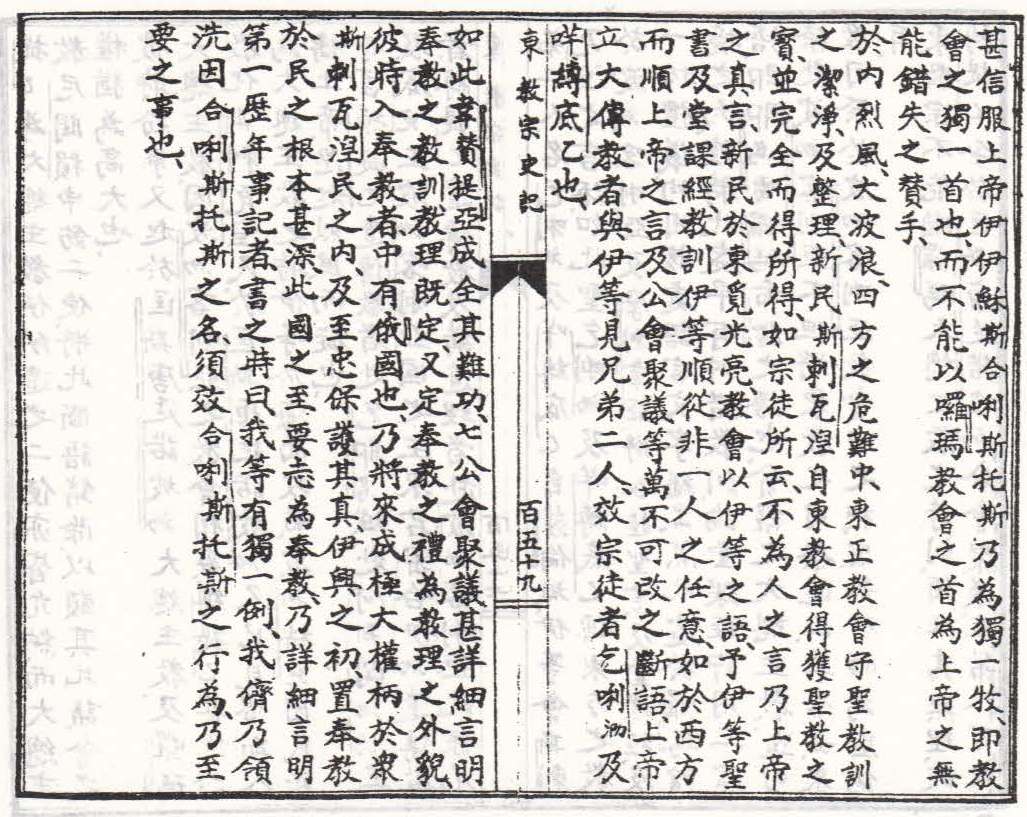 甚信服上帝伊伊穌斯合唎斯托斯乃為獨一牧、即教
會之獨一首也、而不能以囉瑪教會之首為上帝之無
能錯失之贊手、
於內烈風、大波浪、四方之危難中、東正教會守聖教訓
之潔淨、及整理、新民斯剌瓦湼自東教會得獲聖教之
寳並完全而得所得、如宗徒所云、不為人之言乃上帝
之真言、新民於東覓光亮、教會以伊等之語、予伊等聖
書及堂課經教訓伊等順從非一人之任意、如於西方
而順上帝之言及公會聚議等萬不可改之斷語、上帝
立大傳教者與伊等見兄弟二人、效宗徒者乞唎沕及
哶縳底乙也、
東教宗史記
百五十九
如此韋贊提亞成全其難功、七公會聚議、甚詳細言明
奉教之教訓教理既定、又定奉教之禮為教理之外貌、
彼時入奉教者、中有俄國也、乃將來成極大權柄於衆
斯剌瓦湼民之內、及至忠保護其真、伊興之初、置奉教
於民之根本甚深、此國之至要志為奉教、乃詳細言明
第一歷年事記者、書之時曰、我等有獨一例、我儕乃領
洗因合唎斯托斯之名、須效合唎斯托斯之行為、乃至
要之事也、